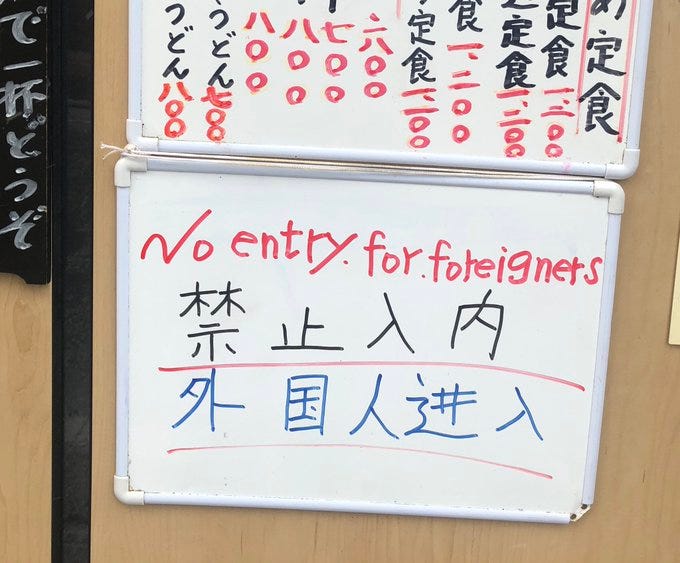 め定食
定食 一、二〇〇
定食 一、二〇〇
食 一、二〇〇
定食
八〇〇
七〇〇
八〇〇
八〇〇
うどん 七〇〇
うどん 八〇〇
で一杯どうぞ
No entry.for.foreigners
禁止入内
外国人进入